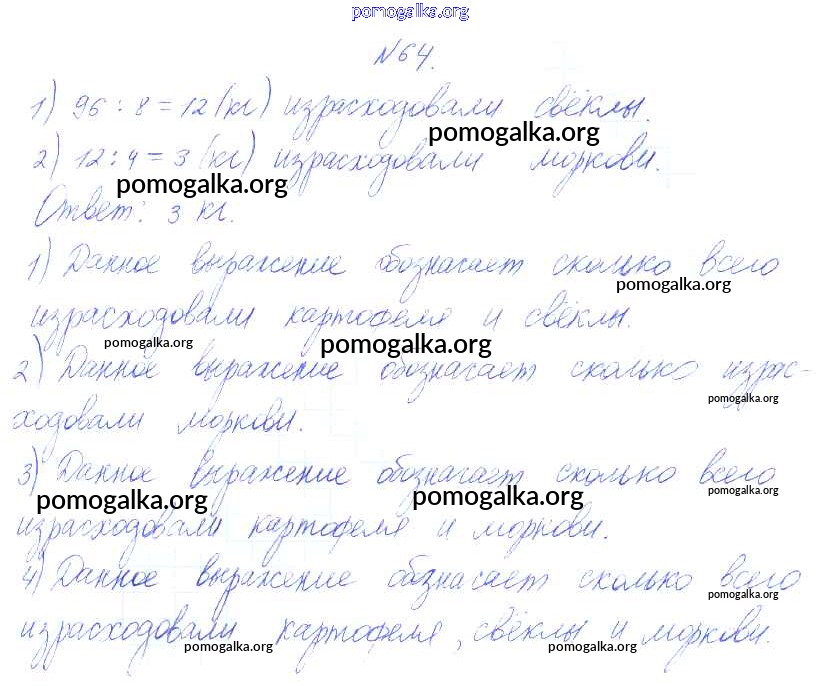 pomogalka.org
№64.
1) 96 : 8 = 12 (кг) израсходовали свёклы.
pomogalka.org
2) 12 : 4 = 3 (кг) израсходовали моркови.
pomogalka.org
Ответ: 3 кг.
1) Данное выражение обозначает сколько всего
pomogalka.org
израсходовали картофеля и свёклы.
pomogalka.org pomogalka.org
2) Данное выражение обозначает сколько израс-
pomogalka.org
ходовали моркови.
3) Данное выражение обозначает сколько всего
pomogalka.org pomogalka.org pomogalka.org
израсходовали картофеля и моркови.
4) Данное выражение обозначает сколько всего
pomogalka.org
израсходовали картофеля, свёклы и моркови.
pomogalka.org pomogalka.org